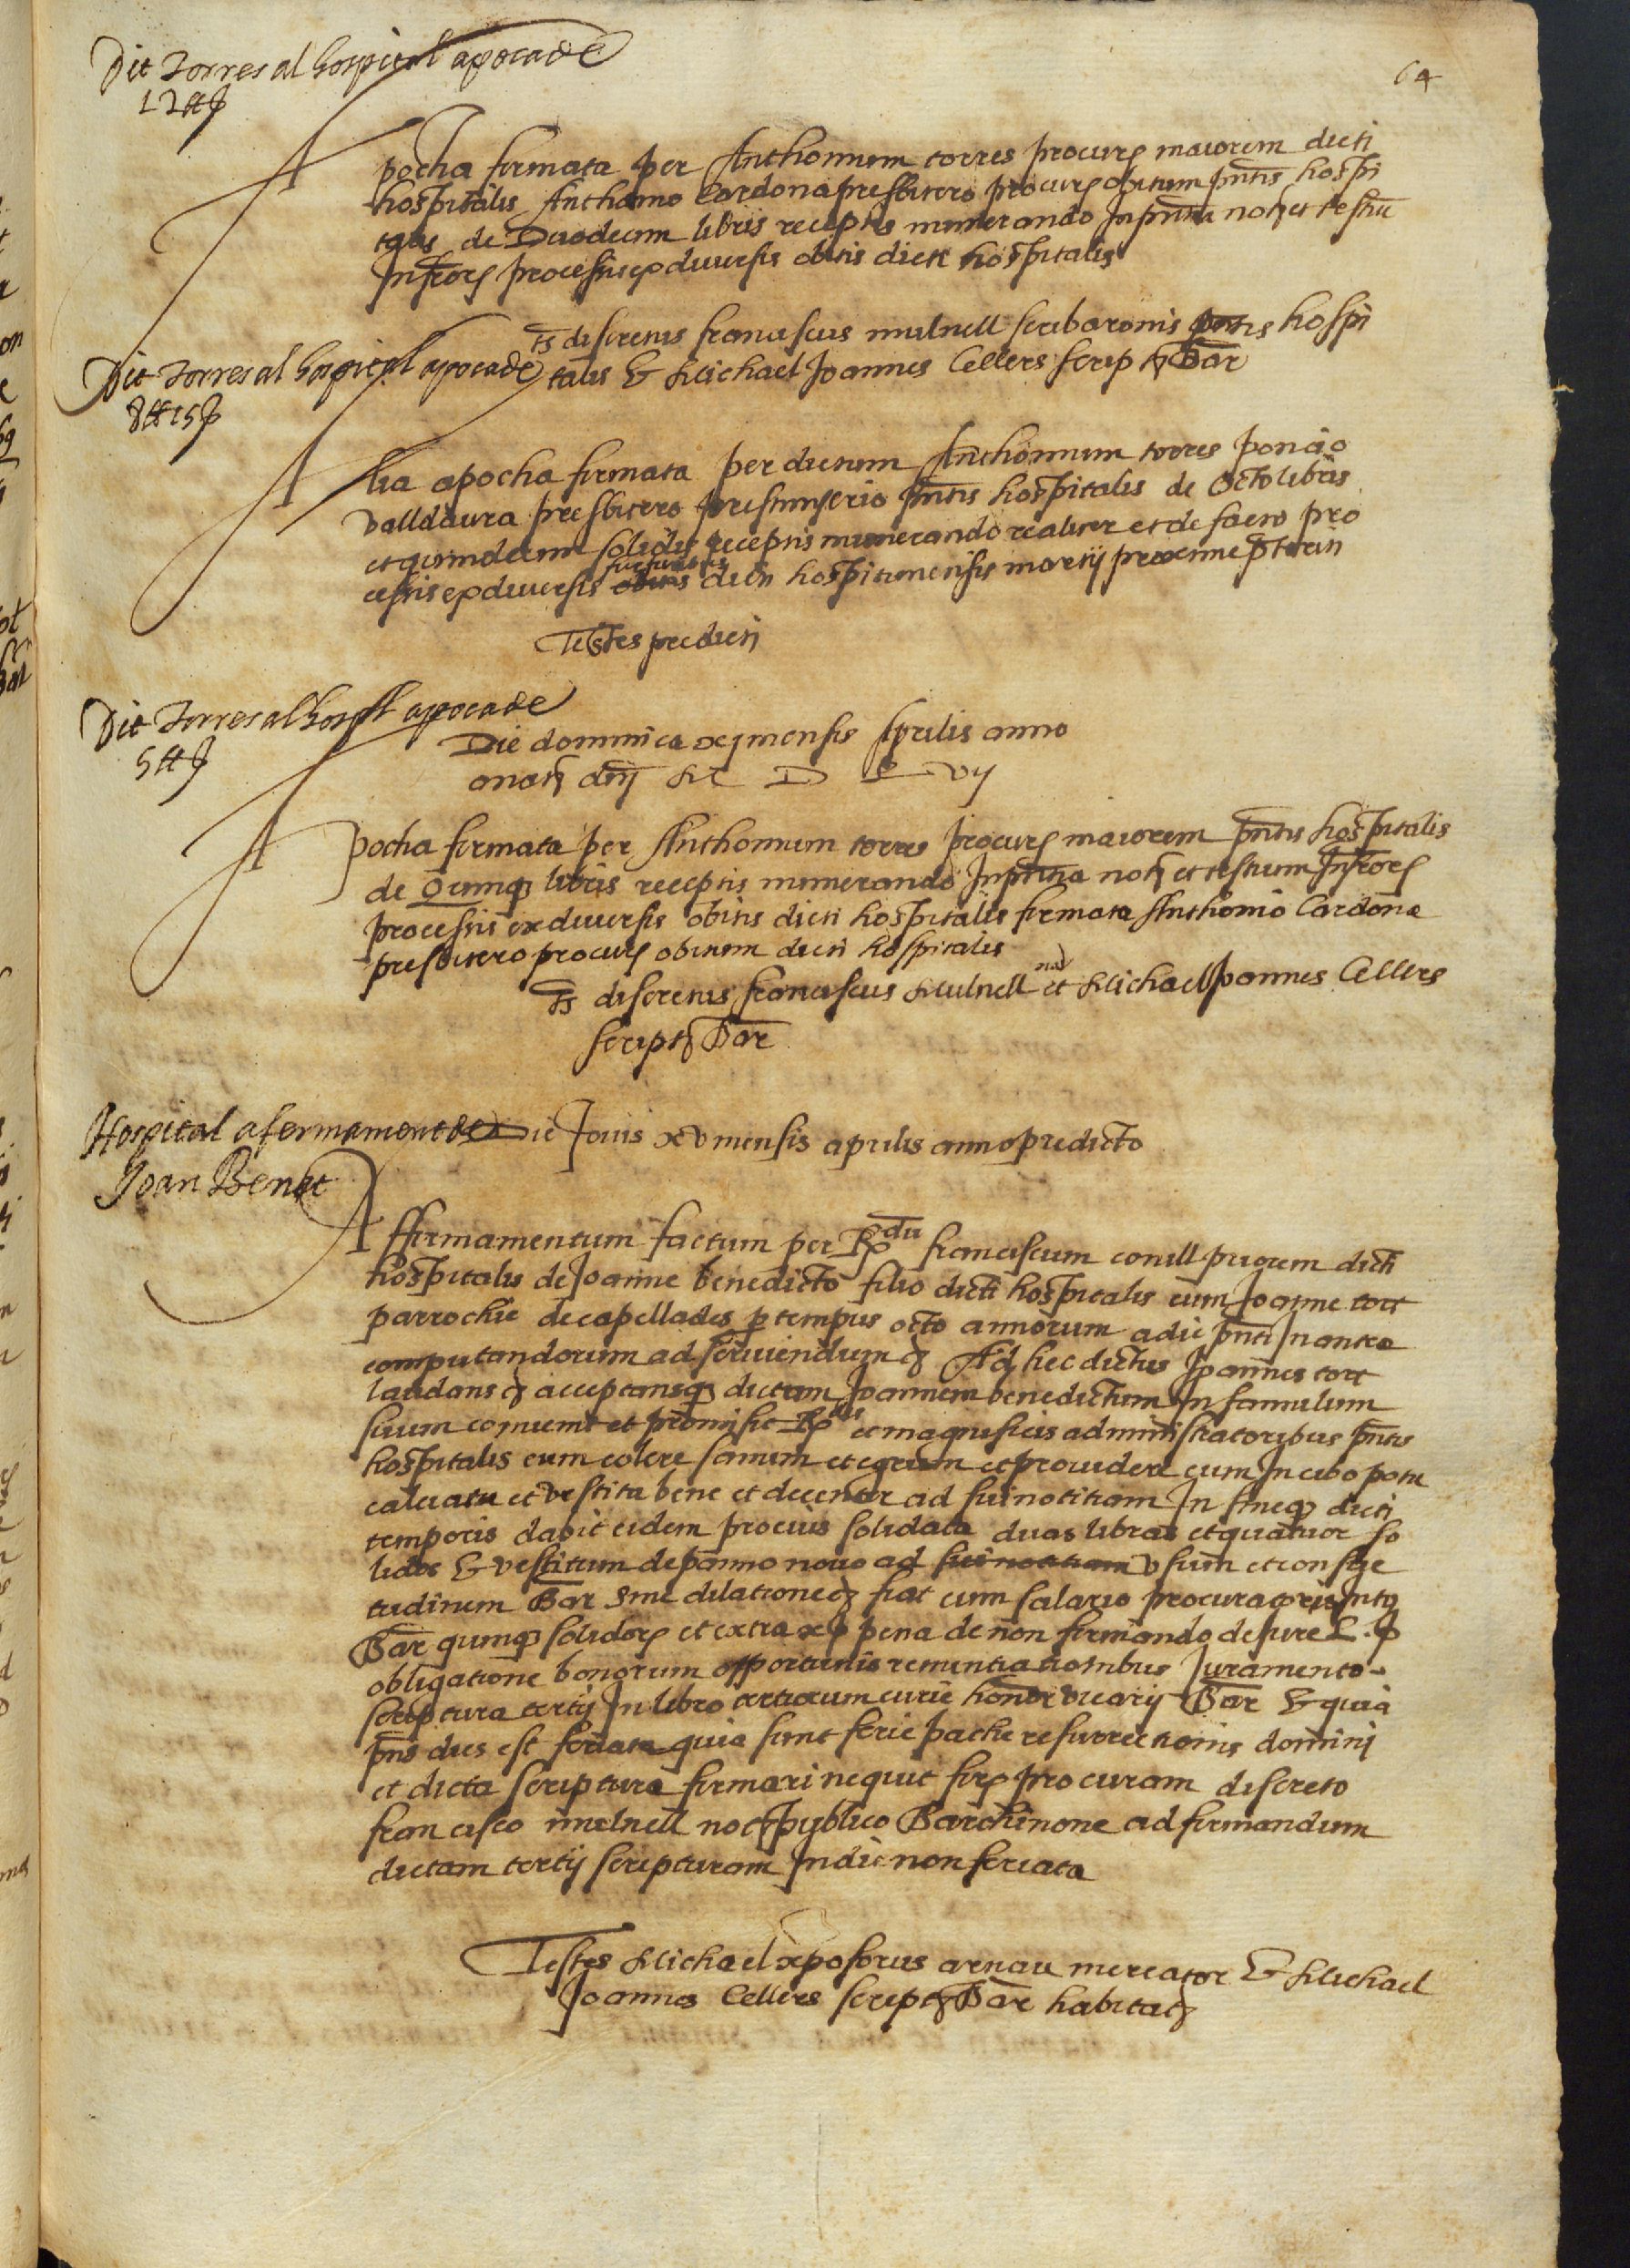 64
Dit Torres al hospital apoca de
12 ₶ ẜ
Apocha firmata per Anthonium torres procurem maiorem dicti
hospitalis Anthonio Cardona presbitero procurem obituum pntis hospi
talis de Duodecim libris receptis numerando In pntia noty et testiu
Infrorem processis ex diversis obitis dicti hospitalis
Ts discretus franciscus mulnell scriba racionis pntis hospi
talis & Michael Joannes Cellers scrip ty Bar
Dit Torres al hospital apoca de
8 ₶ 15 ẜ
Alia apocha firmata per dictum Anthonium torres poncio
valldaura presbitero pntis hospitalis de Octo libris
et quindecim solidis receptis numerando realiter et de facto pro
cessis ex diversis obitis dicti hospiti mensis martij proxime
Testes predicti
Dit Torres al hospital apoca de
5 ₶ ẜ
Die dominica xj mensis Aprilis anno
a naty dnj M D L vij
Apocha firmata per Anthonium torres procurem maiorem pntis hospitalis
de Quinq libris receptis numerando In pntia noty et testium Infrorem
processis ex diversis obitis dicti hospitalis firmata Anthonio Cardona
presbitero procurem obituum dicti hospitalis
Ts discretus franciscus Mulnell not et Michael Joannes Cellers
scripty Bar
Hospital afermament de
Joan Benet
Die Jovis xv mensis aprilis anno predicto
Affirmamentum factum per Rdu franciscum conill priorem dicti
hospitalis de Joanne benedicto filio dicti hospitalis cum Joanne tort
parrochie de capellades p tempus octo annorum a die pnti In antea
computandorum ad serviendum & Ad hec dictus Joannes tort
laudans & acceptansq dictum Joannem benedictum In famulum
suum convenit et promisit Rdis et magnificis administratoribus pntis
hospitalis eum colere sanum et egrum et providere eum In cibo potu
calciatu et vestitu bene et decenter ad sui notitiam In fineq dicti
temporis dabit eidem pro eius solidata duas libras et quatuor so
lidos & vestitum de panno novo ad sui notitiam usum et consue
tudinem Bar Sine dilatione & fiat cum salario procuratoris Intus
Bar quinq solidorem et extra x ẜ pena de non firmando de iure L. ẜ
obligatione bonorum opportunis renuntiationibus Juramento
scriptura tertij In libro tertiorum curie honor vicarij Bar & quia
pns dies est feriata quia sunt ferie pache resurrectionis dominj
et dicta scriptura firmari nequit procuram discreto
francisco mulnell noty publico Barchinone ad firmandum
dictam tertij scripturam In die non feriata
Testes Michael xpoforus arnau mercator & Michael
Joannes Cellers scripty Bar habitaty